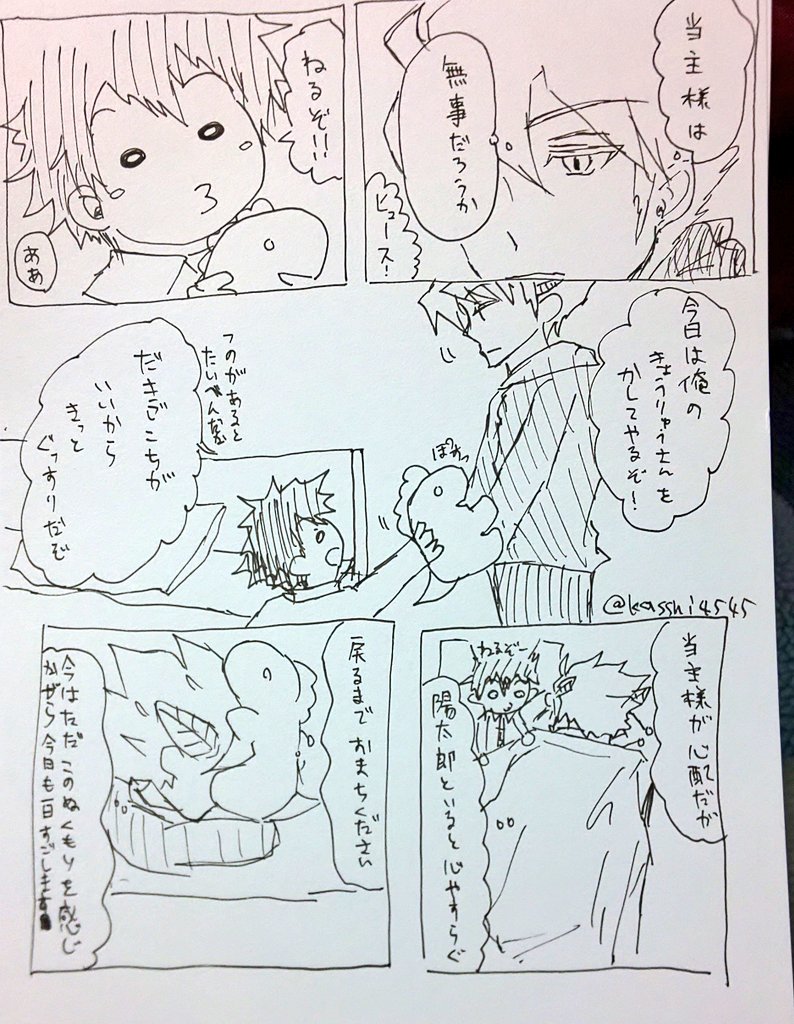 当主様は
無事だろうか
ヒュース!
ねるぞ!!
ああ
今日は俺の
きょうりゅうさんを
かしてやるぞ!
つのがあると
たいへんだな
だきごこちが
いいから
きっと
ぐっすりだぞ
@kasshi4545
当主様が心配だが
ねるぞー
陽太郎といると心やすらぐ
戻るまでおまちください
今はただこのぬくもりを感じ
ながら今日も一日すごします